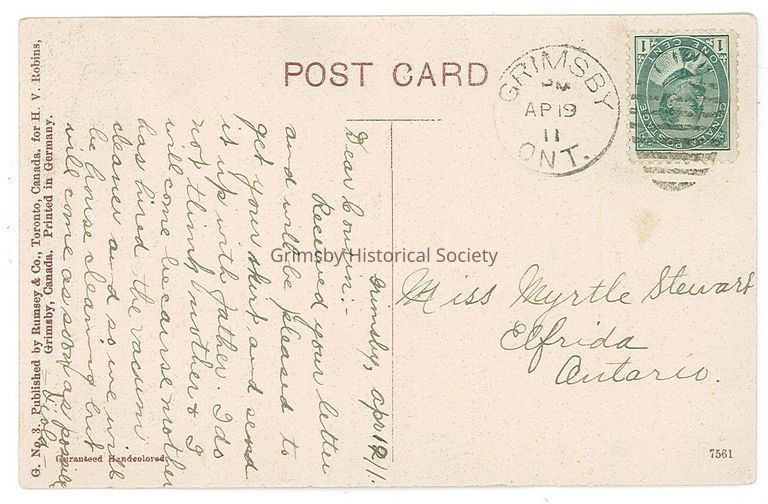 POST CARD
GRIMSBY
PM
AP 19
11
ONT.
1 ONE CENT 1
CANADA POSTAGE
Grimsby, Apr 19/11.
Dear Cousin:-
Received your letter
and will be pleased to
get your skirt and send
it up with father. I do
not think mother & I
will come because mother
has hired the vacuum
cleaner and so we will
be house cleaning but
will come as soon as possible
Miss Myrtle Stewart
Elfrida
Ontario.
G. No. 3. Published by Rumsey & Co., Toronto, Canada, for H. V. Robins,
Grimsby, Canada. Printed in Germany.
Guranteed Handcolored.
7561
Grimsby Historical Society